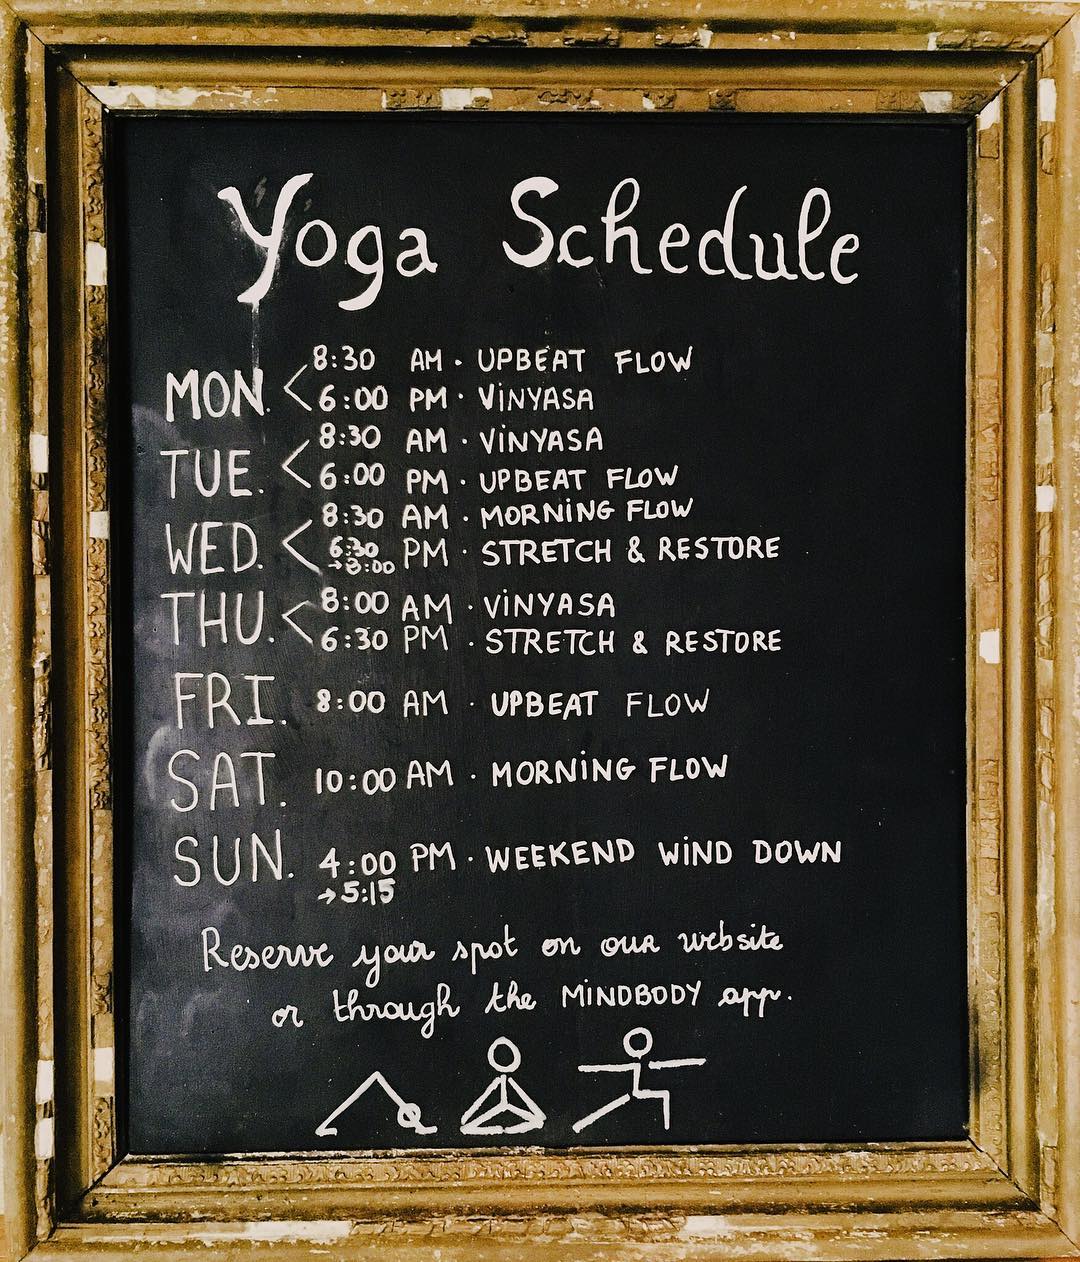 Yoga Schedule
MON. 8:30 AM · UPBEAT FLOW
6:00 PM · VINYASA
TUE. 8:30 AM · VINYASA
6:00 PM · UPBEAT FLOW
WED. 8:30 AM · MORNING FLOW
6:30 PM · STRETCH & RESTORE
→8:00
THU. 8:00 AM · VINYASA
6:30 PM · STRETCH & RESTORE
FRI. 8:00 AM · UPBEAT FLOW
SAT. 10:00 AM · MORNING FLOW
SUN. 4:00 PM · WEEKEND WIND DOWN
→5:15
Reserve your spot on our website
or through the MINDBODY app.